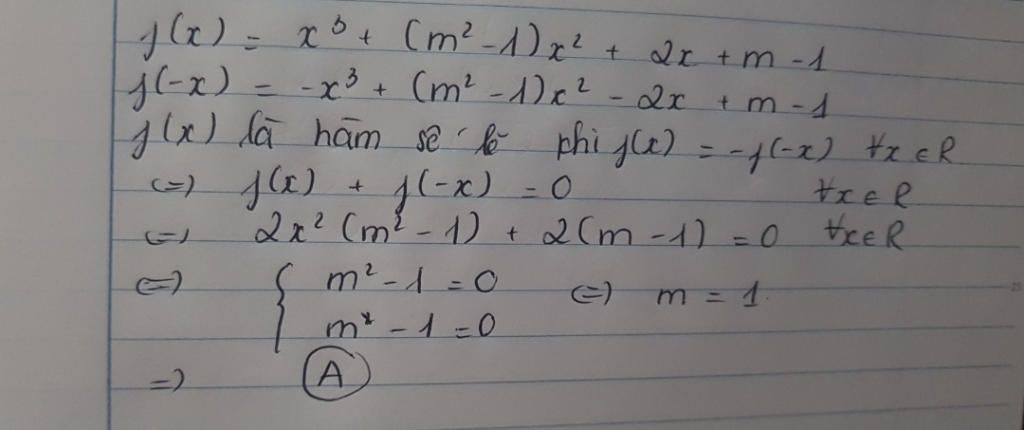 f(x) = x³ + (m² - 1)x² + 2x + m - 1
f(-x) = -x³ + (m² - 1)x² - 2x + m - 1
f(x) là hàm số lẻ khi f(x) = -f(-x) ∀x ∈ R
<=> f(x) + f(-x) = 0 ∀x ∈ R
<=> 2x² (m² - 1) + 2(m - 1) = 0 ∀x ∈ R
<=> { m² - 1 = 0 <=> m = 1
m - 1 = 0
=> A